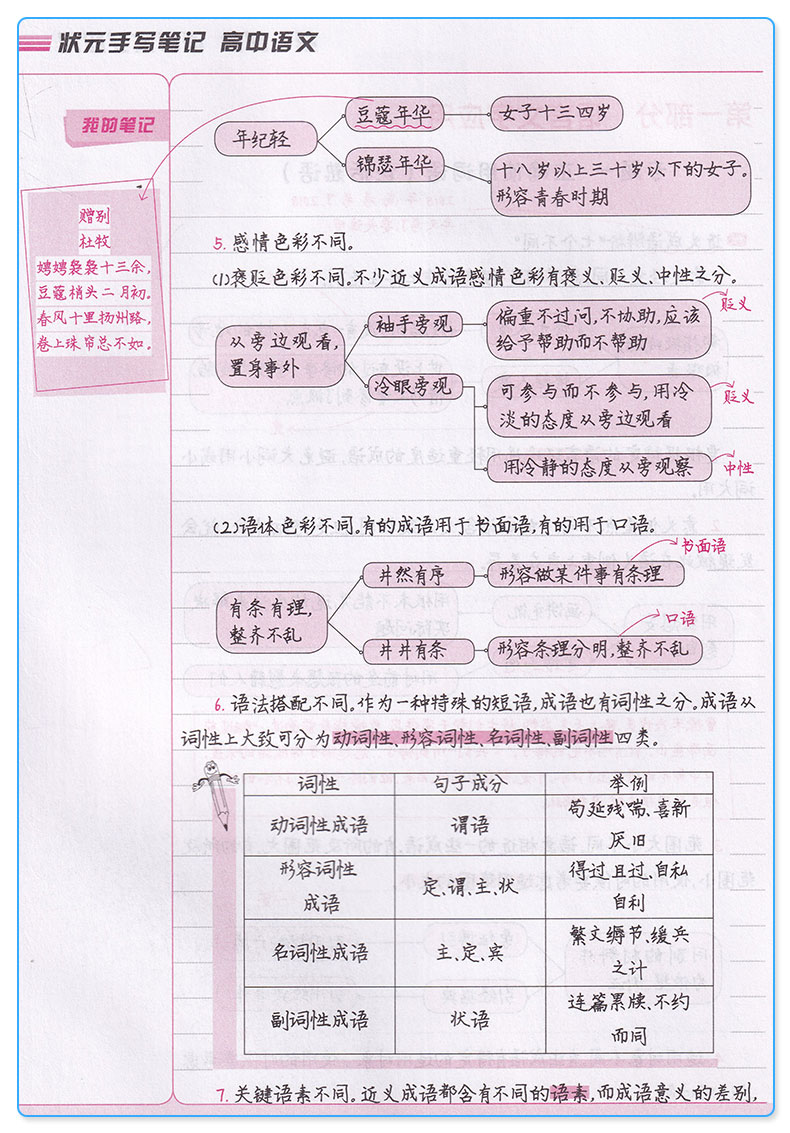 状元手写笔记 高中语文
我的笔记
赠别
杜牧
娉娉袅袅十三余，
豆蔻梢头二月初。
春风十里扬州路，
卷上珠帘总不如。
年纪轻
豆蔻年华
女子十三四岁
锦瑟年华
十八岁以上三十岁以下的女子。
形容青春时期
5.感情色彩不同。
(1)褒贬色彩不同。不少近义成语感情色彩有褒义、贬义、中性之分。
从旁边观看，
置身事外
袖手旁观
偏重不过问，不协助，应该
给予帮助而不帮助
贬义
冷眼旁观
可参与而不参与，用冷
淡的态度从旁边观看
贬义
用冷静的态度从旁观察
中性
(2)语体色彩不同。有的成语用于书面语，有的用于口语。
有条有理，
整齐不乱
井然有序
形容做某件事有条理
书面语
井井有条
形容条理分明，整齐不乱
口语
6.语法搭配不同。作为一种特殊的短语，成语也有词性之分。成语从
词性上大致可分为动词性、形容词性、名词性、副词性四类。
词性 句子成分 举例
动词性成语 谓语 苟延残喘、喜新
厌旧
形容词性
成语 定、谓、主、状 得过且过、自私
自利
名词性成语 主、定、宾 繁文缛节、缓兵
之计
副词性成语 状语 连篇累牍、不约
而同
7.关键语素不同。近义成语都含有不同的语素，而成语意义的差别，